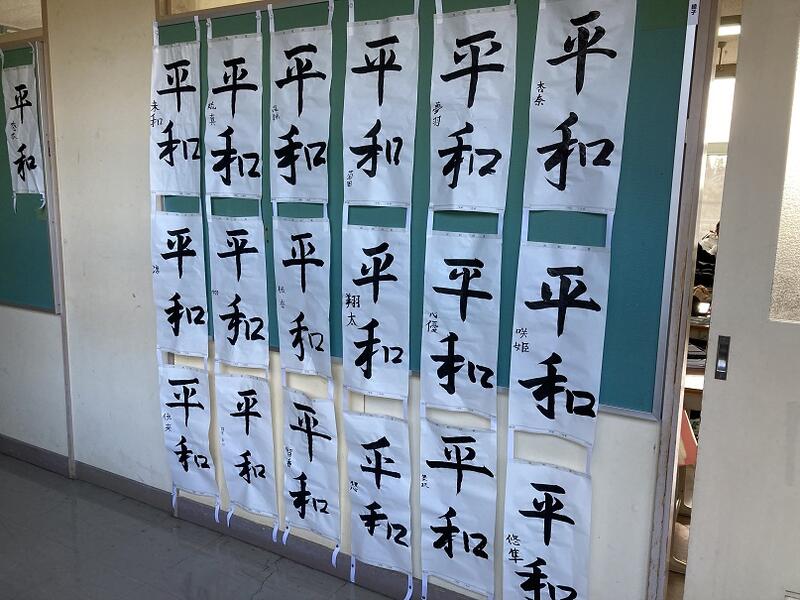 平和
平和
未和
平和
平和
平和
平和
夢羽
平和
杏奈
平和
平和
平和
平和
翔太
平和
心優
平和
咲姫
平和
平和
平和
平和
悠
平和
平和
悠隼